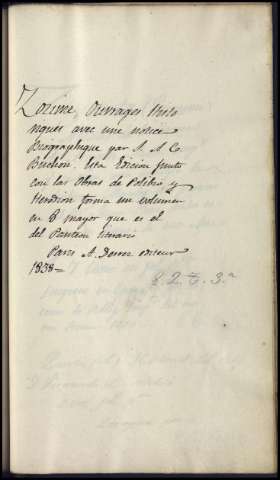 Zosime, Ouvrages histo
riques avec une notice
Biographique par J. A. C.
Buchon. Esta Edicion junto
con las Obras de Polibio y
Herodien forma un volumen
en 8 mayor que es el
del Panteon literario
Paris A. Desrez editeur
1838=
8. 2. 6. 3.ª